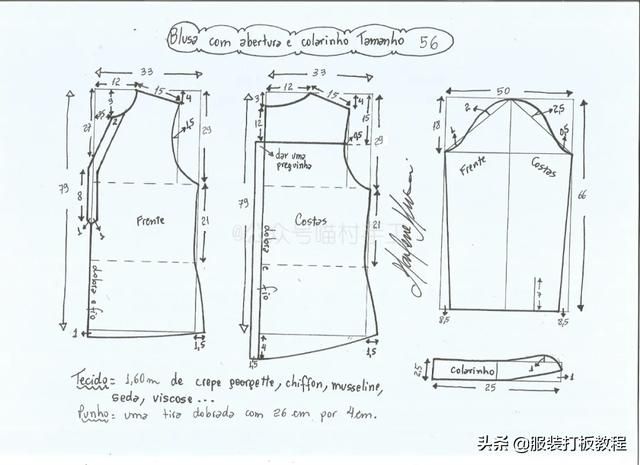 Blusa com abertura e colarinho Tamanho 56
33
12
15
4
9
2
1,5
29
79
8
1
1
Frente
21
dobra e fio
1
1,5
33
3
15
4
12
0,5
dar uma preguinha
29
79
Costas
21
dobra e fio
4
1,5
1,5
50
18
2
2,5
1
0,5
Frente
Costas
66
7
8,5
8,5
2,5
colarinho
1
1
25
Tecido= 1,60m de crepe georgette, chiffon, musseline,
seda, viscose...
Punho= uma tira dobrada com 26 cm por 4cm.
头条 @服装打板教程